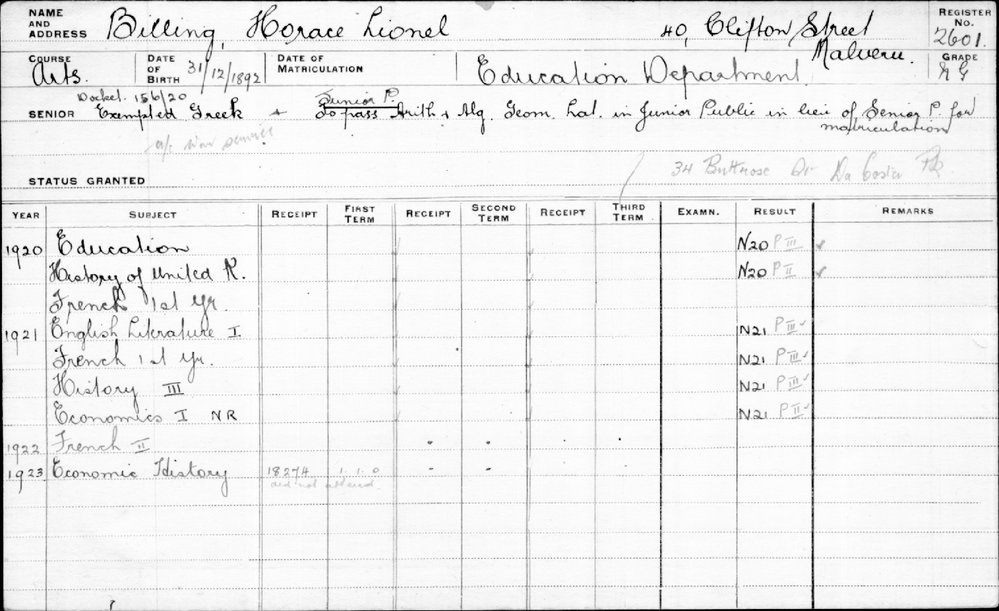 NAME AND ADDRESS Billing, Horace Lionel 40, Clifton Street Malvern. REGISTER No. 2601
COURSE Arts. DATE OF BIRTH 31/12/1892 DATE OF MATRICULATION Education Department GRADE
Docket 156/20 Junior P.
SENIOR Exempted Greek + To pass Arith + Alg. Geom. Lat. in Junior Public in lieu of Senior P. for matriculation
a/c War service
34 Buttrose
STATUS GRANTED
YEAR SUBJECT RECEIPT FIRST TERM RECEIPT SECOND TERM RECEIPT THIRD TERM EXAMN. RESULT REMARKS
1920 Education N20 P III
History of United K. N20 P II
French 1st Yr.
1921 English Literature I N21 P III
French 1st Yr. N21 P III
History III N21 P III
Economics I NR N21 P II
1922 French II
1923 Economic History 18274 1. 1. 0
did not attend